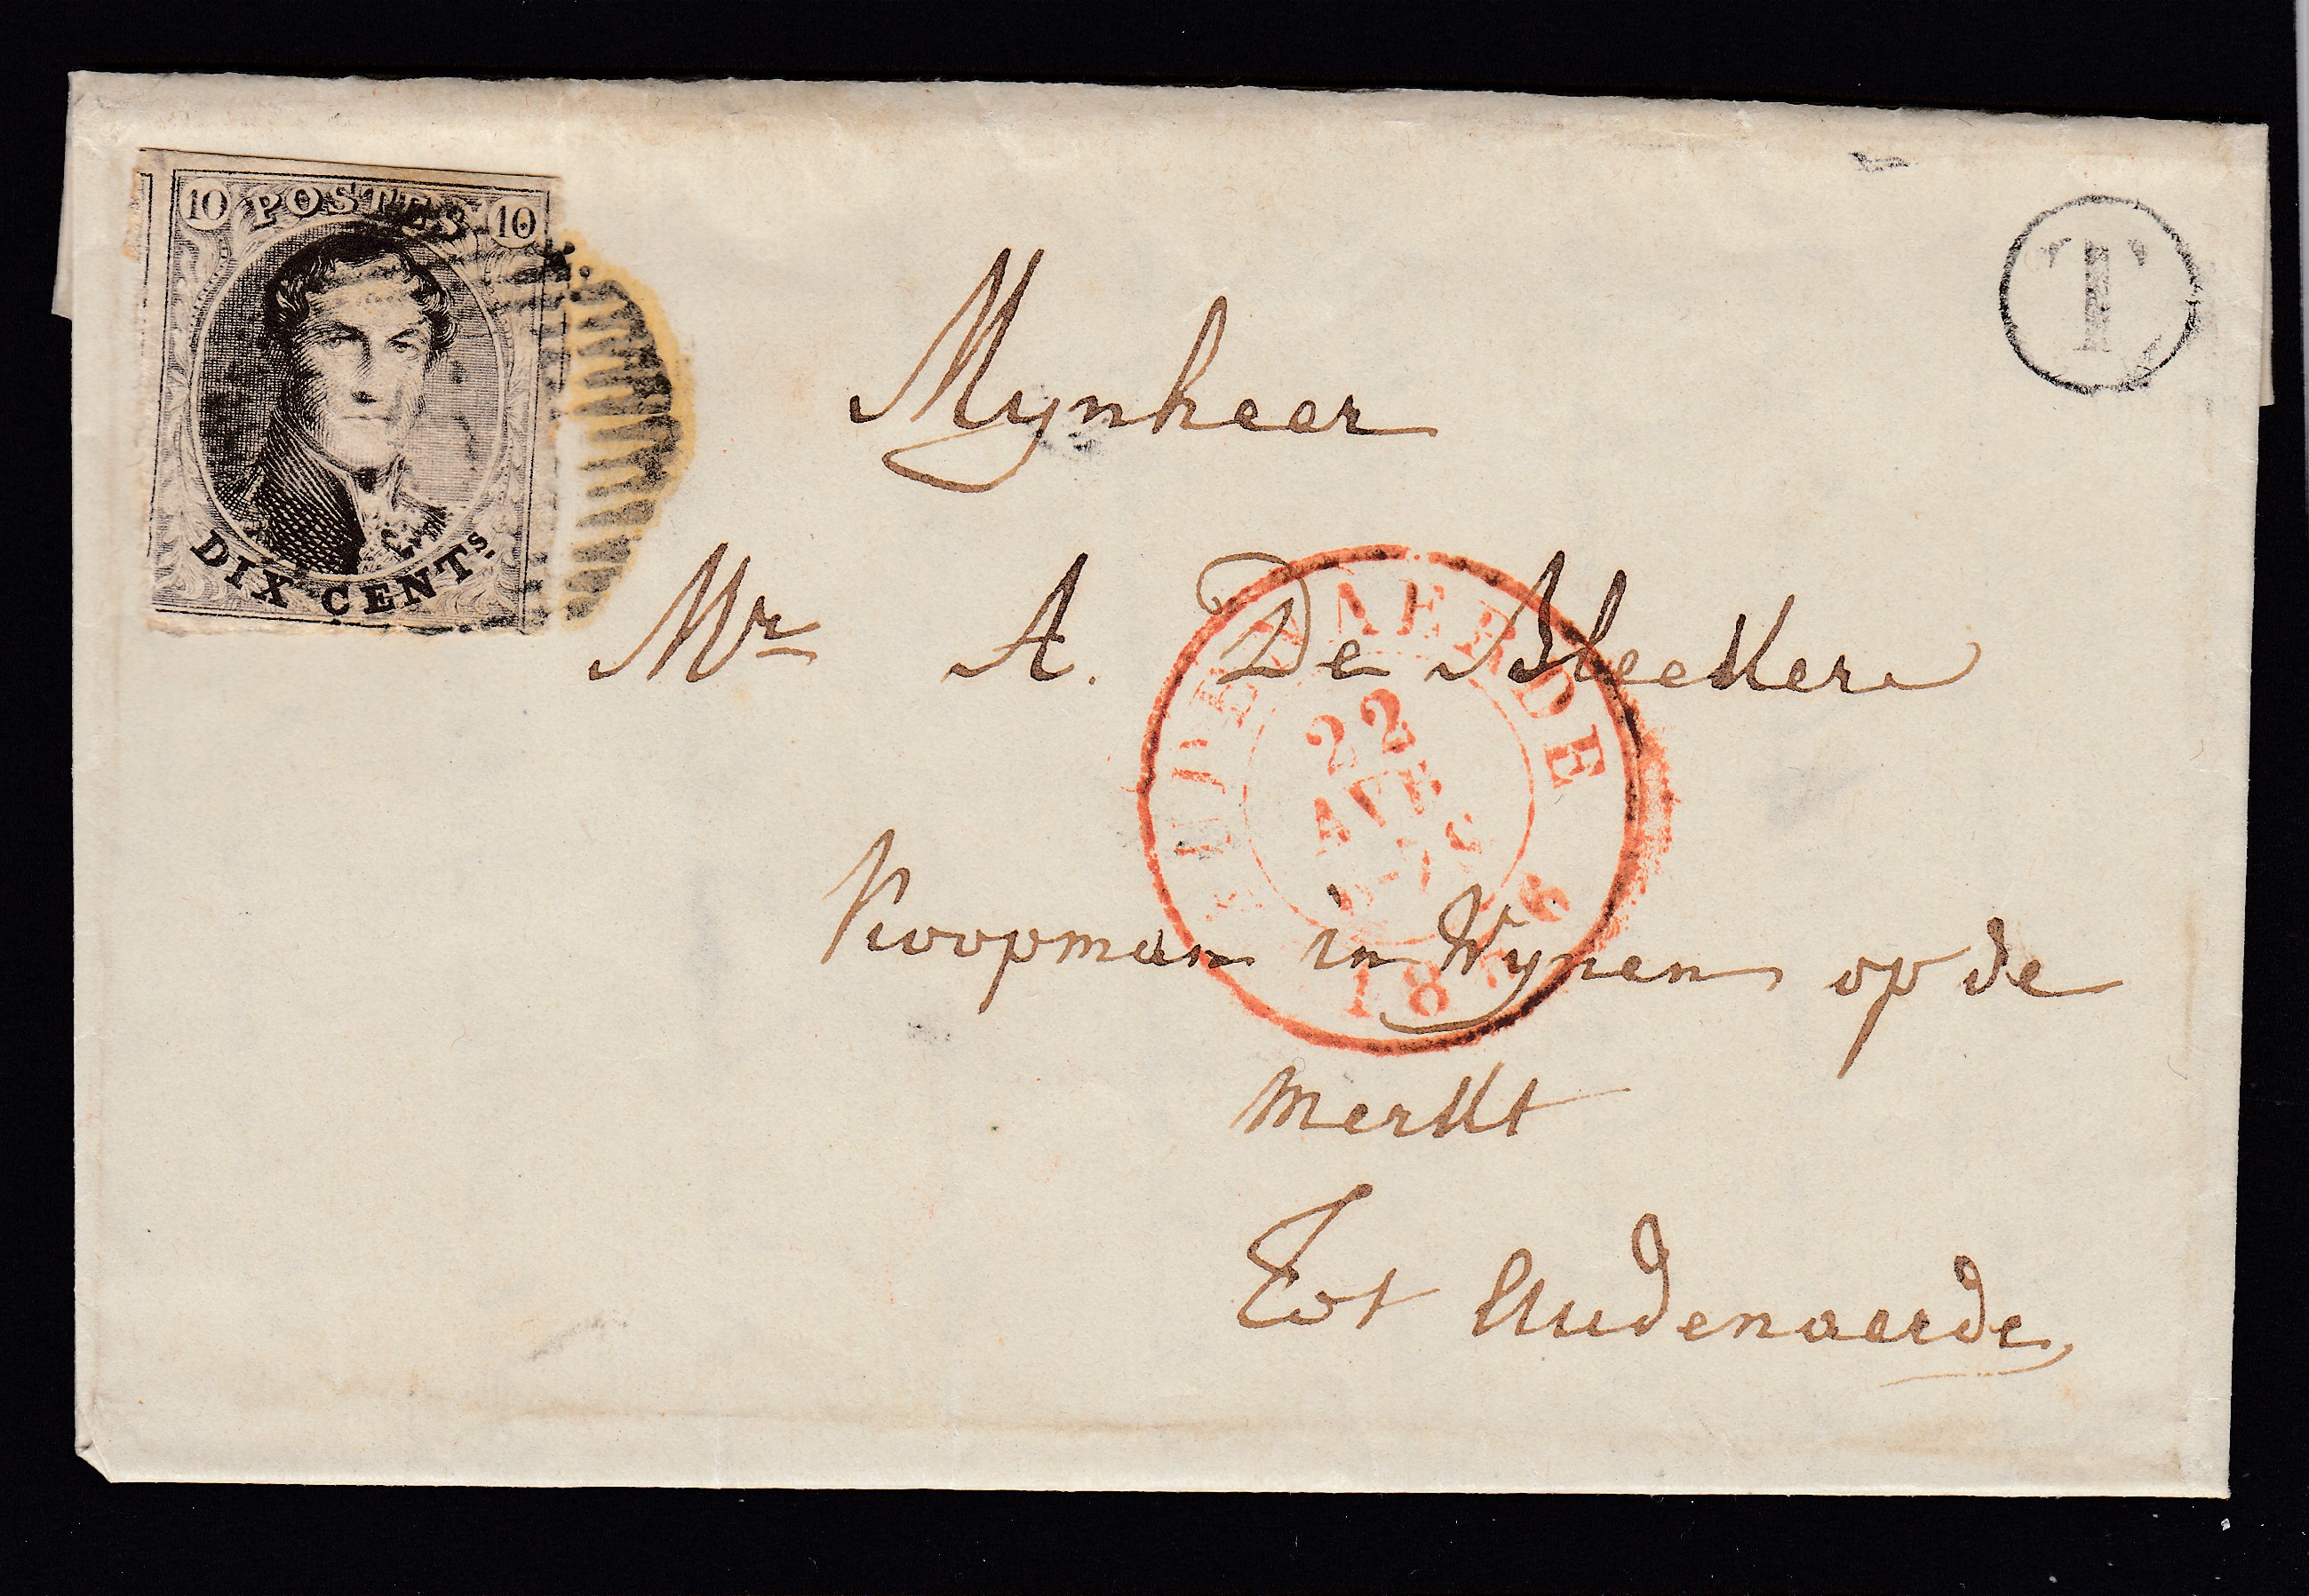 10 POSTES 10
DIX CENTS.
T
Mynheer
Mr A. De Bleekker
AUDENAERDE
22
AVR
18 6
Koopman in Wynen op de
merkt
Tot Audenaerde